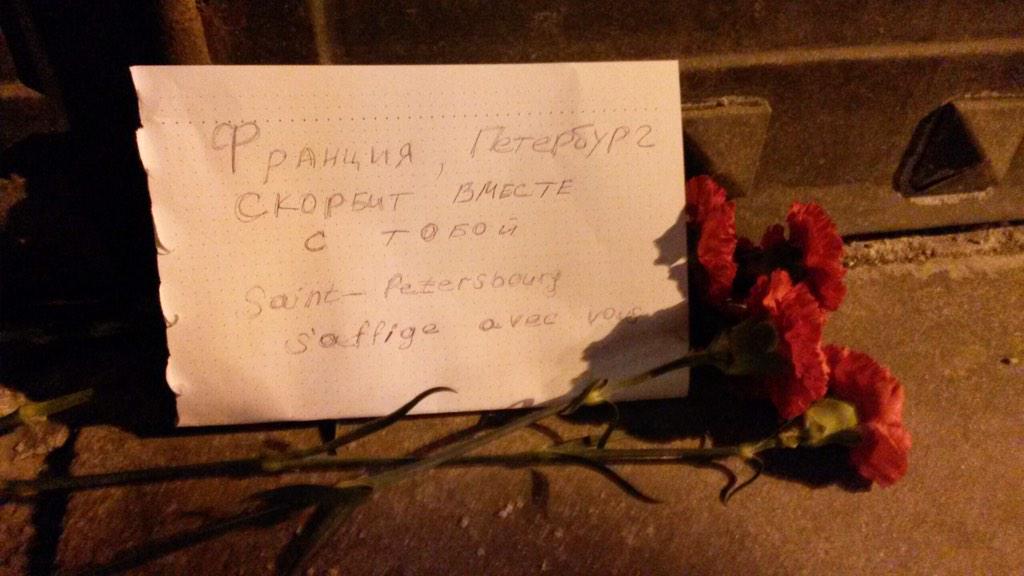 Франция, Петербург
скорбит вместе
с тобой
Saint-Petersbourg
s'afflige avec vous